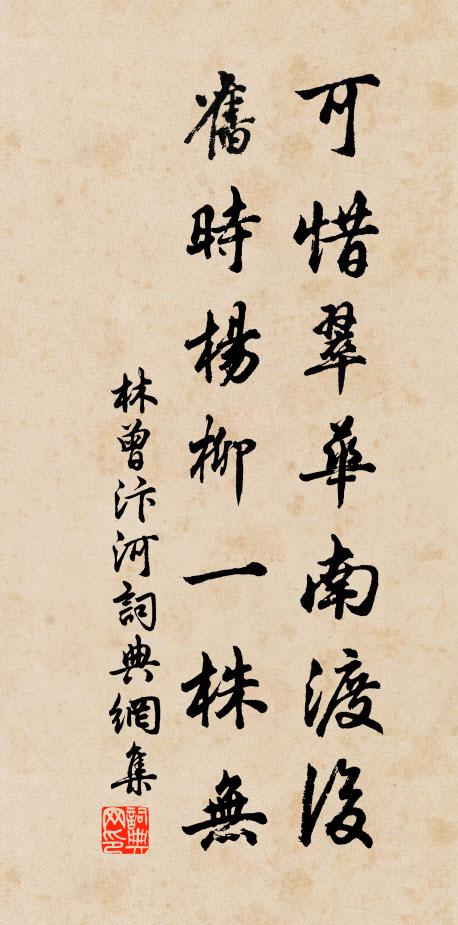 可惜翠華南渡後
舊時楊柳一株無
林曾汴河詞典網集
詞典網印